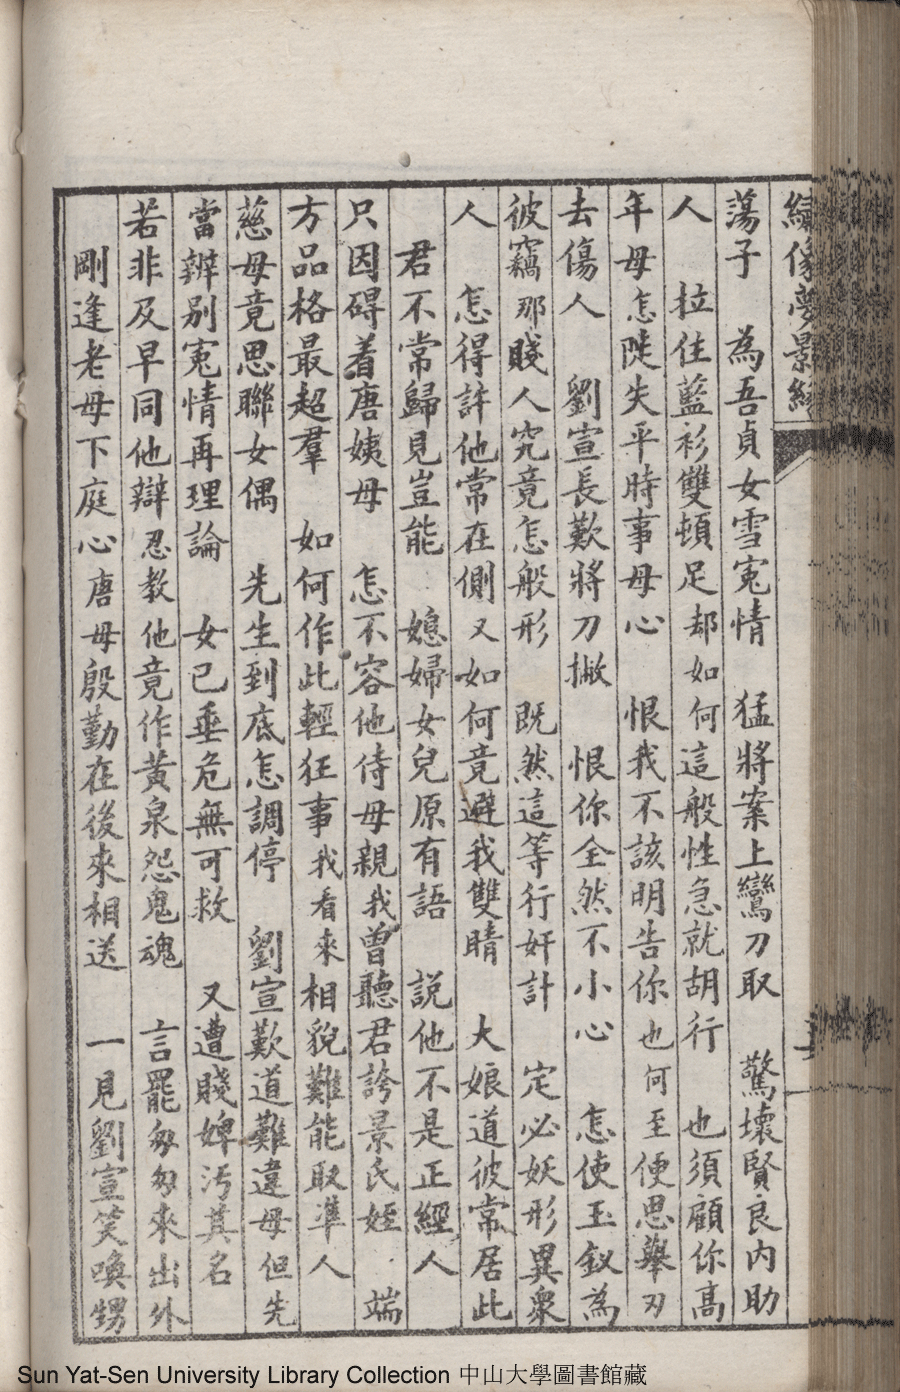 繡像夢影緣
蕩子　為吾貞女雪寃情　猛將案上鸞刀取　驚壞賢良內助
人　拉住藍衫雙頓足却如何這般性急就胡行　也須顧你高
年母怎陡失平時事母心　恨我不該明告你也何至便思舉刃
去傷人　劉宣長歎將刀撇　恨你全然不小心　怎使玉釵為
彼竊那賤人究竟怎般形　既然這等行奸計　定必妖形異衆
人　怎得許他常在側又如何竟避我雙睛　大娘道彼常居此
君不常歸見豈能　媳婦女兒原有語　說他不是正經人
只因碍着唐姨母　怎不容他侍母親我曾聽君誇景氏姪　端
方品格最超羣　如何作此輕狂事我看來相貌難能取準人
慈母竟思聯女偶　先生到底怎調停　劉宣歎道難違母但先
當辨別寃情再理論　女已垂危無可救　又遭賤婢污其名
若非及早同他辯忍教他竟作黃泉怨鬼魂　言罷匆匆來出外
剛逢老母下庭心唐母殷勤在後來相送　一見劉宣笑喚甥
Sun Yat-Sen University Library Collection 中山大學圖書館藏